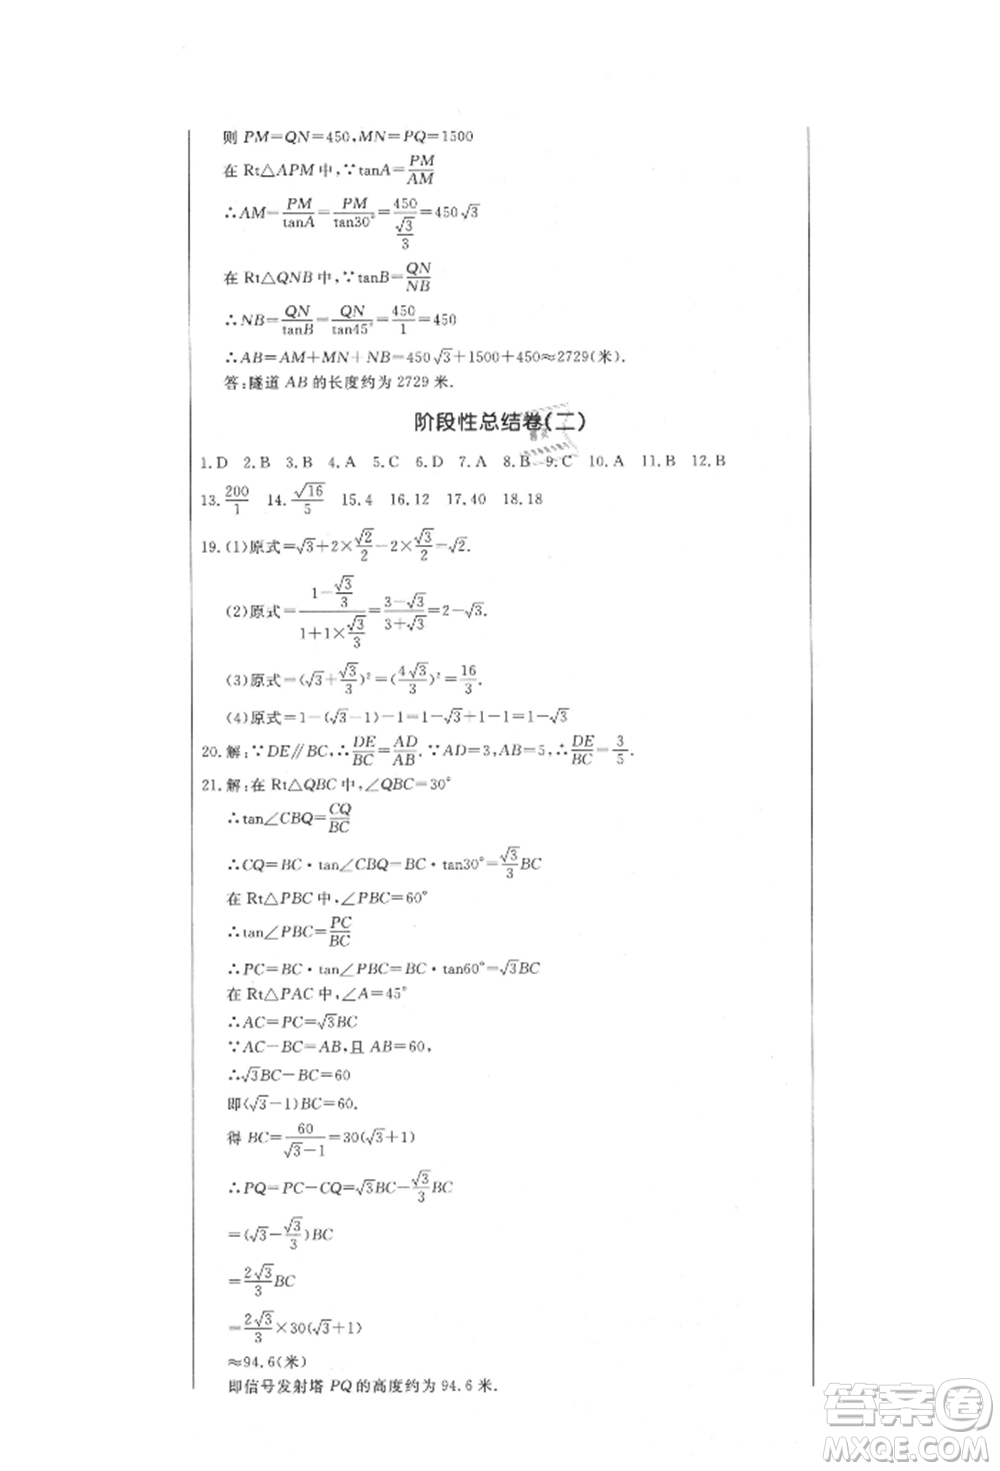 则 PM=QN=450,MN=PQ=1500
在 Rt△APM 中,∵tanA=PM/AM
∴AM=PM/tanA=PM/tan30°=450/(√3/3)=450√3
在 Rt△QNB 中,∵tanB=QN/NB
∴NB=QN/tanB=QN/tan45°=450/1=450
∴AB=AM+MN+NB=450√3+1500+450≈2729(米).
答:隧道 AB 的长度约为 2729 米.
阶段性总结卷(二)
1.D 2.B 3.B 4.A 5.C 6.D 7.A 8.B 9.C 10.A 11.B 12.B
13.200/1 14.√16/5 15.4 16.12 17.40 18.18
19.(1)原式=√3+2×√2/2-2×√3/2=√2.
(2)原式=(1-√3/3)/(1+1×√3/3)=(3-√3)/(3+√3)=2-√3.
(3)原式=(√3+√3/3)²=(4√3/3)²=16/3.
(4)原式=1-(√3-1)-1=1-√3+1-1=1-√3
20.解:∵DE∥BC,∴DE/BC=AD/AB.∵AD=3,AB=5,∴DE/BC=3/5.
21.解:在 Rt△QBC 中,∠QBC=30°
∴tan∠CBQ=CQ/BC
∴CQ=BC·tan∠CBQ=BC·tan30°=√3/3BC
在 Rt△PBC 中,∠PBC=60°
∴tan∠PBC=PC/BC
∴PC=BC·tan∠PBC=BC·tan60°=√3BC
在 Rt△PAC 中,∠A=45°
∴AC=PC=√3BC
∵AC-BC=AB,且 AB=60,
∴√3BC-BC=60
即(√3-1)BC=60.
得 BC=60/(√3-1)=30(√3+1)
∴PQ=PC-CQ=√3BC-√3/3BC
=(√3-√3/3)BC
=2√3/3BC
=2√3/3×30(√3+1)
≈94.6(米)
即信号发射塔 PQ 的高度约为 94.6 米.
答案卷
MXQE.COM